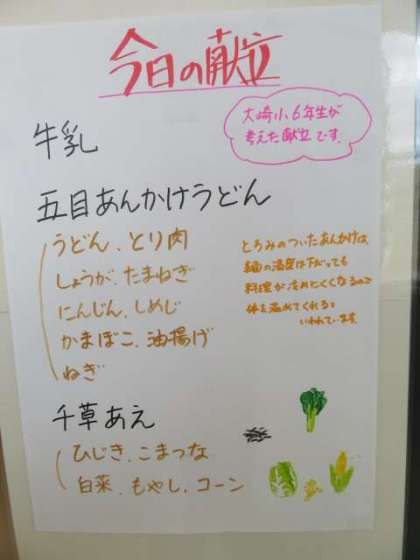 今日の献立
大崎小6年生が
考えた献立です。
牛乳
五目あんかけうどん
うどん、とり肉
しょうが、たまねぎ
にんじん、しめじ
かまぼこ、油揚げ
ねぎ
とろみのついたあんかけは、
麺の温度は下がっても
料理が冷めにくくなるので
体を温めてくれると
いわれています。
千草あえ
ひじき、こまつな
白菜、もやし、コーン